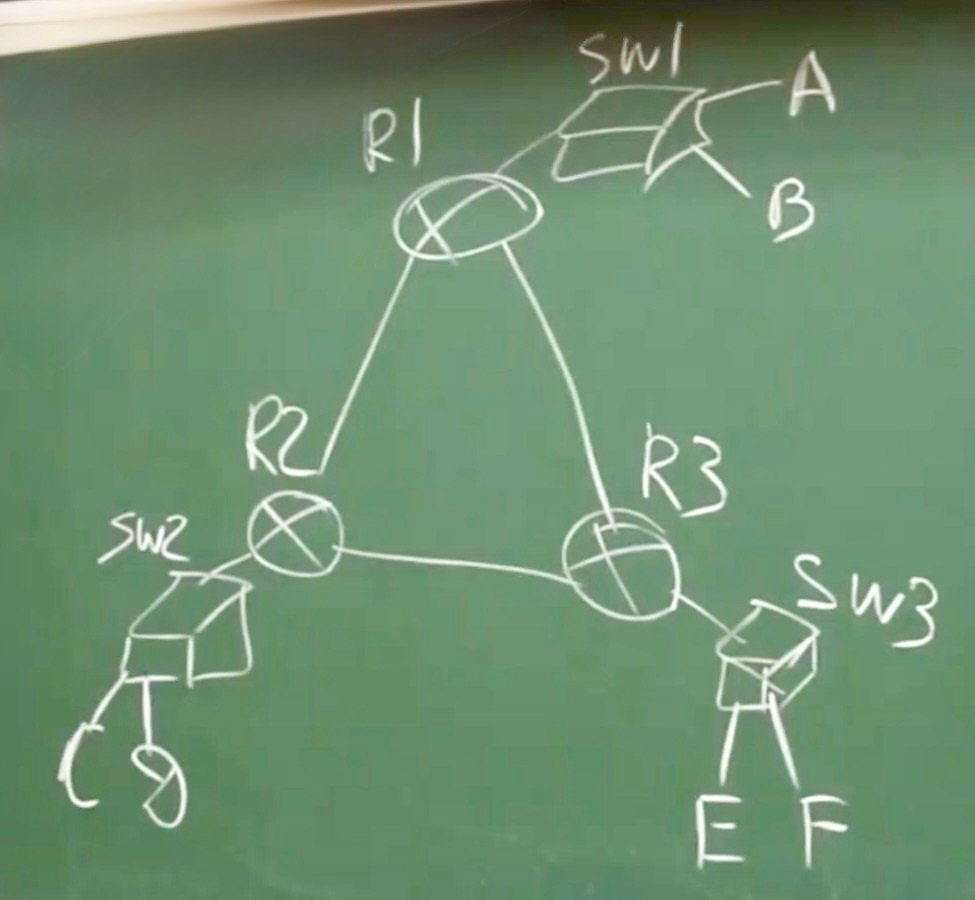 SW1
A
R1
B
R2
R3
SW2
SW3
C
D
E F